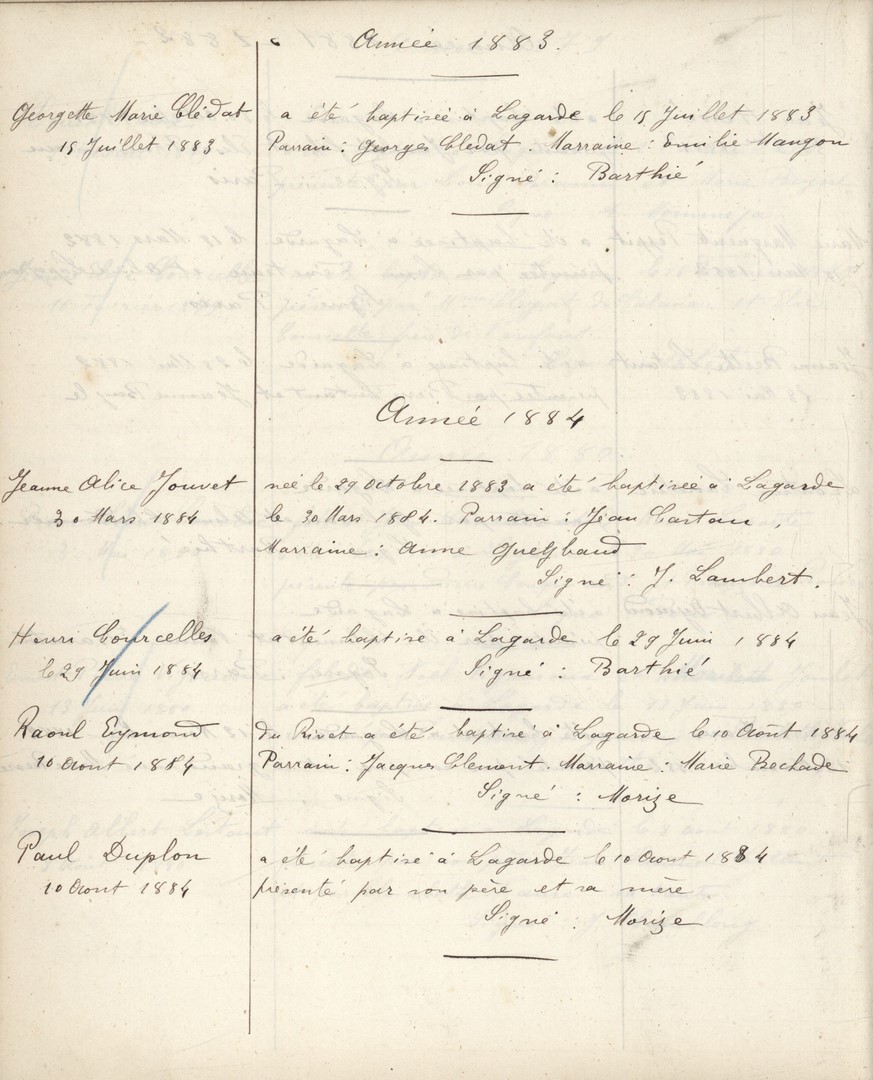 Année 1883.
Georgette Marie Clédat a été baptisée à Lagarde le 15 Juillet 1883
15 Juillet 1883 Parrain : Georges Cledat. Marraine : Emilie Mangon
Signé : Barthié
Année 1884
Jeanne Alice Jouvet née le 29 octobre 1883 a été baptisée à Lagarde
30 Mars 1884 le 30 Mars 1884. Parrain : Jean Castan,
Marraine : Anne
Signé : J. Lambert.
Henri Courcelles a été baptisé à Lagarde le 29 Juin 1884
le 29 Juin 1884 Signé : Barthié
Raoul Eymond du Rivet a été baptisé à Lagarde le 10 Août 1884
10 Aout 1884 Parrain : Jacques Clement. Marraine : Marie Bechade
Signé : Morize
Paul Duplon a été baptisé à Lagarde le 10 Aout 1884
10 Aout 1884 présenté par son père et sa mère
Signé : Morize